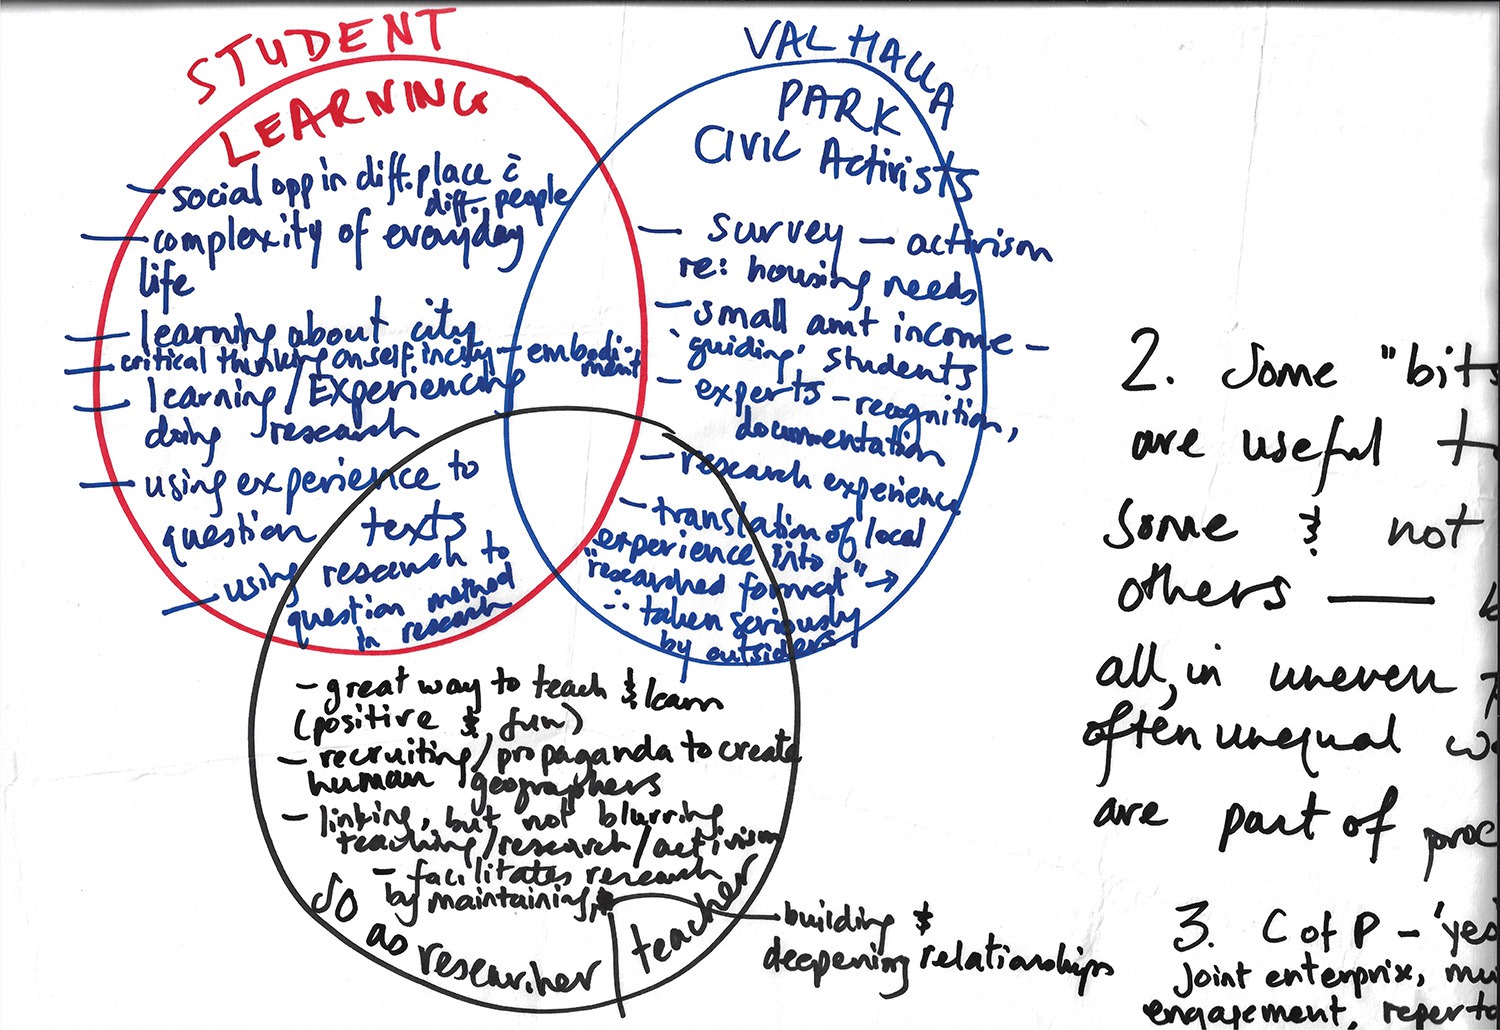 STUDENT
LEARNING
– social opp in diff. place c̄
diff. people
– complexity of everyday
life
– learning about city
– critical thinking on self in city – embodi-
ment
– learning/Experiencing
doing research
– using experience to
question texts
– using research to
question method
in research
VALHALLA
PARK
CIVIC Activists
– survey – activism
re: housing needs
– small amt income –
'guiding' students
– experts – recognition,
documentation
– research experience
– translation of local
"experience into
researched format" →
∴ taken seriously
by outsiders
– great way to teach &
learn
(positive & fun)
– recruiting/propaganda to create
human geographers
– linking, but not blurring
teaching/research/activism
– facilitates research
by maintaining,
building &
deepening relationships
SO
as researcher
teacher
2. Some "bits
are useful t
some & not
others — b
all, in uneven
often unequal w
are part of proc
3. C of P – 'yes
joint enterprise, mu
engagement, reperto